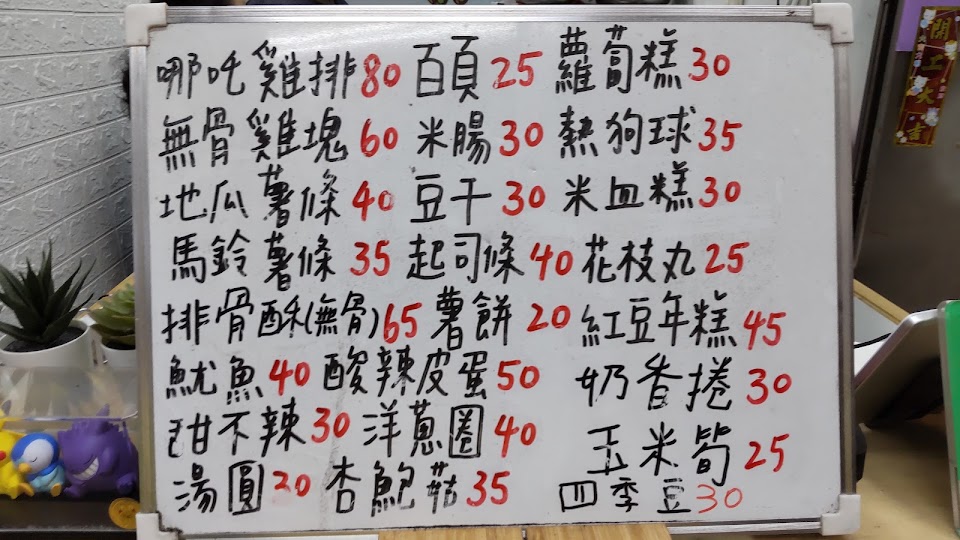 哪吒雞排80 百頁25 蘿蔔糕30
無骨雞塊60 米腸30 熱狗球35
地瓜薯條40 豆干30 米血糕30
馬鈴薯條35 起司條40 花枝丸25
排骨酥(無骨)65 薯餅20 紅豆年糕45
魷魚40 酸辣皮蛋50 奶香捲30
甜不辣30 洋蔥圈40 玉米筍25
湯圓20 杏鮑菇35 四季豆30
開工大吉